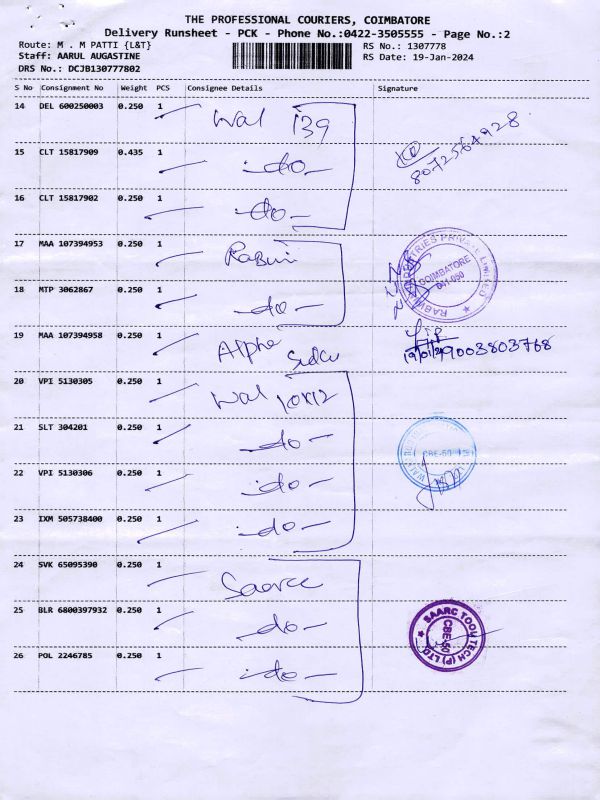 THE PROFESSIONAL COURIERS, COIMBATORE
Delivery Runsheet - PCK - Phone No.:0422-3505555 - Page No.:2
Route: M . M PATTI {L&T} RS No.: 1307778
Staff: AARUL AUGASTINE RS Date: 19-Jan-2024
DRS No.: DCJB130777802
S No Consignment No Weight PCS Consignee Details Signature
14 DEL 600250003 0.250 1 Wal 139
8072564928
15 CLT 15817909 0.435 1 -do-
16 CLT 15817902 0.250 1 -do-
17 MAA 107394953 0.250 1
COIMBATORE
641-050
18 MTP 3062867 0.250 1 -do-
19 MAA 107394958 0.250 1 Alpha
19/01/24 9003803768
20 VPI 5130305 0.250 1 Wal
21 SLT 304201 0.250 1 -do-
CBE-50
22 VPI 5130306 0.250 1 -do-
23 IXM 505738400 0.250 1 -do-
24 SVK 65095390 0.250 1
25 BLR 6800397932 0.250 1 -do-
SAARC TOOLTECH (P) LTD
CBE-50
26 POL 2246785 0.250 1 -do-